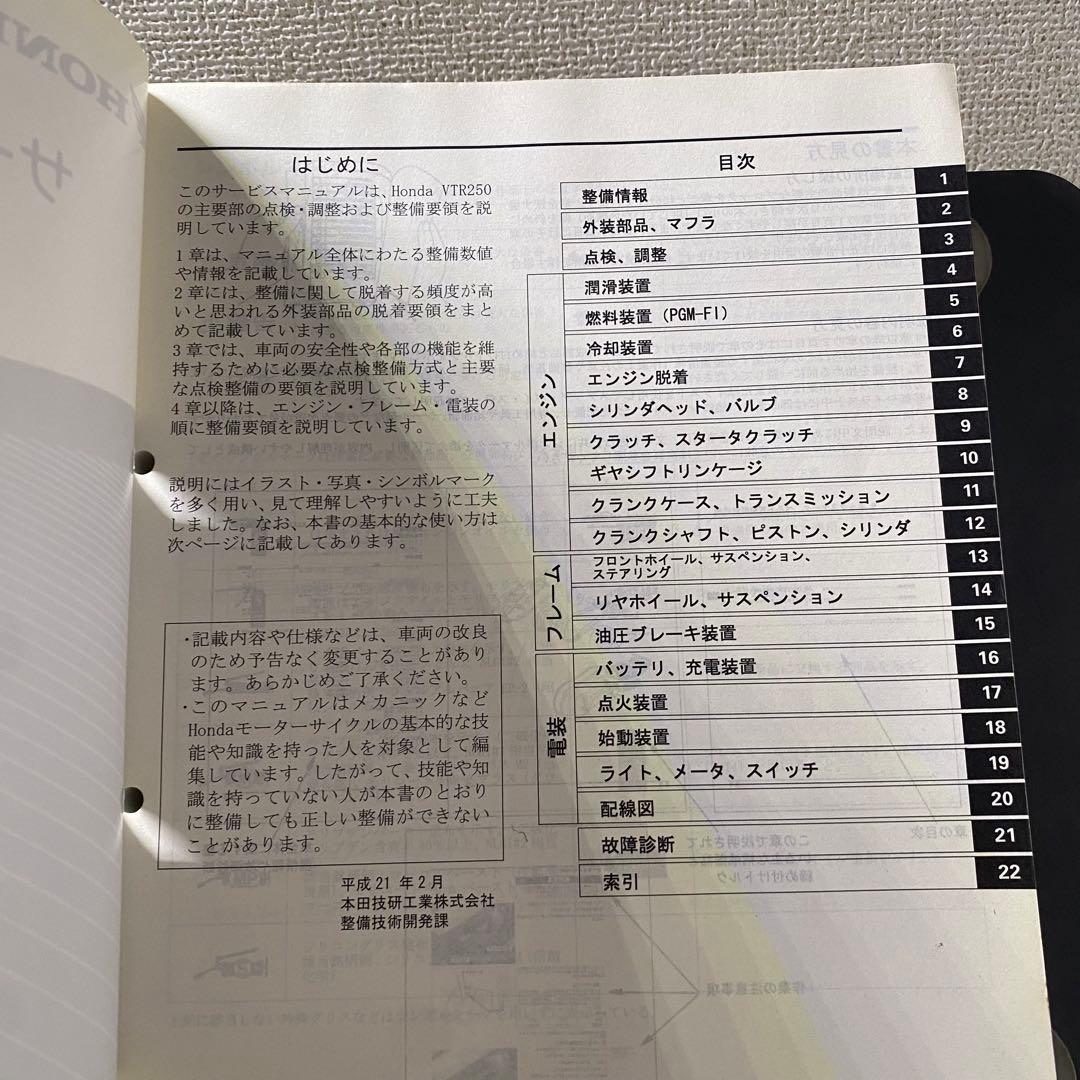 はじめに
このサービスマニュアルは、Honda VTR250
の主要部の点検・調整および整備要領を説
明しています。
1章は、マニュアル全体にわたる整備数値
や情報を記載しています。
2章には、整備に関して脱着する頻度が高
いと思われる外装部品の脱着要領をまと
めて記載しています。
3章では、車両の安全性や各部の機能を維
持するために必要な点検整備方式と主要
な点検整備の要領を説明しています。
4章以降は、エンジン・フレーム・電装の
順に整備要領を説明しています。
説明にはイラスト・写真・シンボルマーク
を多く用い、見て理解しやすいように工夫
しました。なお、本書の基本的な使い方は
次ページに記載してあります。
・記載内容や仕様などは、車両の改良
のため予告なく変更することがあり
ます。あらかじめご了承ください。
・このマニュアルはメカニックなど
Hondaモーターサイクルの基本的な技
能や知識を持った人を対象として編
集しています。したがって、技能や知
識を持っていない人が本書のとおり
に整備しても正しい整備ができない
ことがあります。
平成21年2月
本田技研工業株式会社
整備技術開発課
目次
整備情報 1
外装部品、マフラ 2
点検、調整 3
エンジン
潤滑装置 4
燃料装置 (PGM-FI) 5
冷却装置 6
エンジン脱着 7
シリンダヘッド、バルブ 8
クラッチ、スタータクラッチ 9
ギヤシフトリンケージ 10
クランクケース、トランスミッション 11
クランクシャフト、ピストン、シリンダ 12
フレーム
フロントホイール、サスペンション、
ステアリング 13
リヤホイール、サスペンション 14
油圧ブレーキ装置 15
電装
バッテリ、充電装置 16
点火装置 17
始動装置 18
ライト、メータ、スイッチ 19
配線図 20
故障診断 21
索引 22